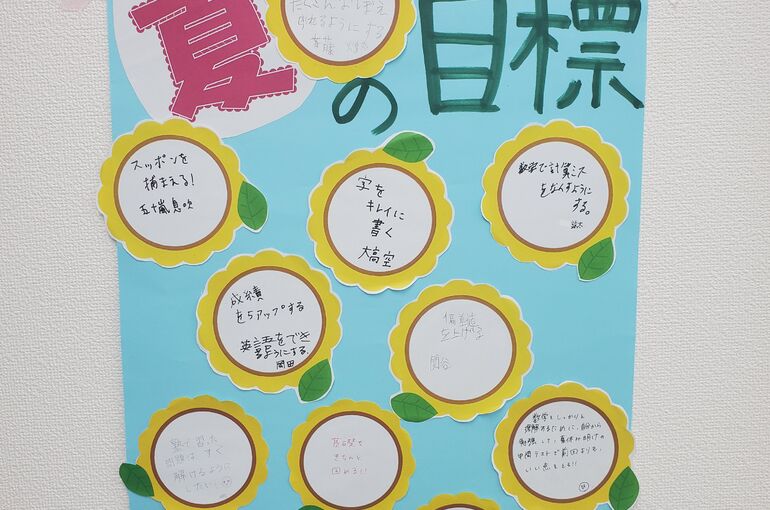 夏の目標
たくさんおぼえ
られるようにする
斉藤
スッポンを
捕まえる!
五十嵐息吹
字を
キレイに
書く
大高空
数学で計算ミス
をなくすように
する。
鈴木
成績
を5アップする
英語をでき
るようにする。
岡田
偏差値
を上げる
関谷
塾で習った
問題は、すぐ
解けるように
したい。
基礎を
きちんと
固める!!
数学をしっかりと
理解するために、自分から
勉強して、夏休み明けの
中間テストで前回よりも、
いい点をとる!!